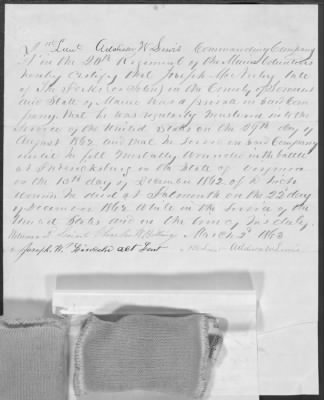 I 1st Lieut Addison W Lewis Commanding Company
A in the 20th Regiment of the Maine Volunteers
hereby certify that Joseph
of The Forks in the County of Somerset
and State of Maine was a private in said Com
pany that he was regularly mustered into the
Service of the United States on the 29th day of
August 1862 and that he served in said Company
until he fell Mortally Wounded in the battle
at Fredericksburg in the State of Virginia
on the 13th day of December 1862. of which
wounds he died at Falmouth on the 22d day
of December 1862 while in the service of the
United States and in the line of his duty.
March 2d 1863
Joseph W. Lincoln act Lieut Addison W Lewis